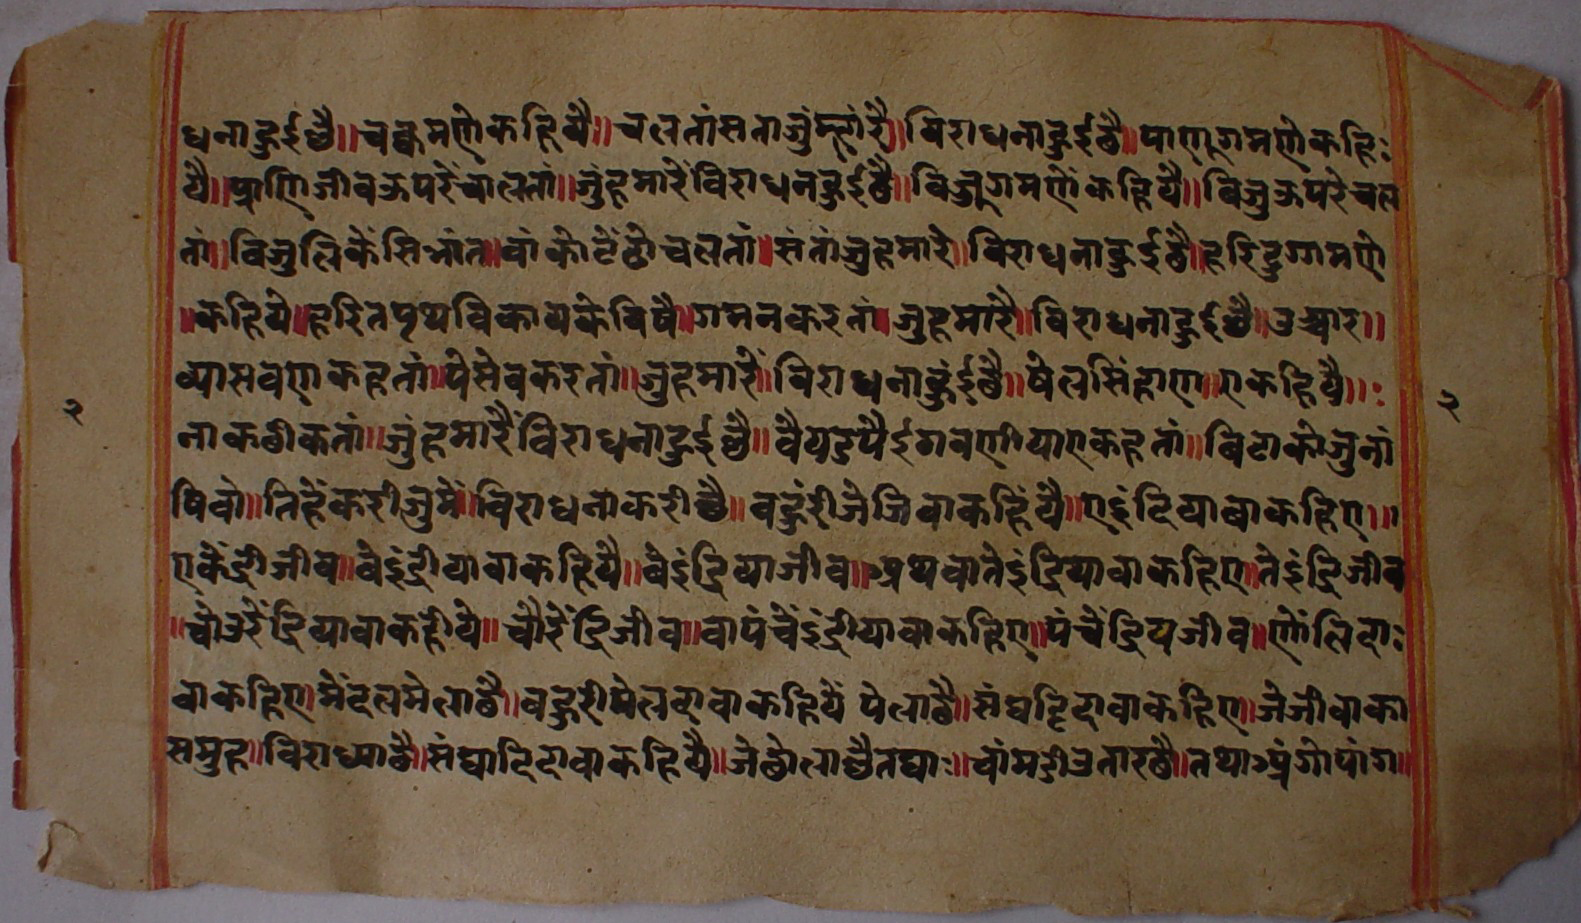 धनाहुईछै॥ चक्कमणेकहियै॥ चलतांसताजुंम्हारै॥ विराधनाहुईछै॥ पाणुगमणेकहि
यै॥ प्राणिजीवऊपरेंचालतां॥ जुंहमारेंविराधनहुईछै॥ विजुगमणेंकहियै॥ विजुऊपरेचल
तां॥ विजुलिकें चलतां॥ संतांजुहमारे॥ विराधनाहुईछै॥ हरिदुगामणे
॥ कहिये॥ हरितपृथविकायकेविषै॥ गमनकरतां॥ जुहमारै॥ विराधनाहुईछै॥ उच्चार॥
व्यासवणकहतां॥ पेसेबकरतां॥ जुहमारें॥ विराधनाहुंईछै॥ षेलसिंहाण॥ एकहियै॥
२ २
नाकठीकतां॥ जुंहमारैंविराधनाहुईछै॥ कहतां॥
षिवो॥ तिहेंकरीजुमें॥ विराधनाकरीछै॥ बहुंरीजेजिवाकहिंयै॥ एइंदियाबाकहिए॥
एकेंद्रीजीव॥ बेइंद्रीयावाकहियै॥ बेइंद्रियाजीव॥ अथवातेइंद्रियावाकहिए॥ तेइंद्रिजीव
॥ चोउरेंद्रियावाकहीये॥ चौरेंद्रिजीव॥ वापंचेंइंद्रीयावाकहिए॥ पंचेंद्रियजीव॥ णोलिदा
वाकहिए॥ मेंदलमेलाछै॥ बहुरीपेलदावाकहियें पेलाछै॥ संघट्टिदावाकहिए॥ जेजीवाका
समुह॥ विराध्याछै॥ संघादिदावाकहियै॥ उतारछै॥ तथाअंगोपांग॥